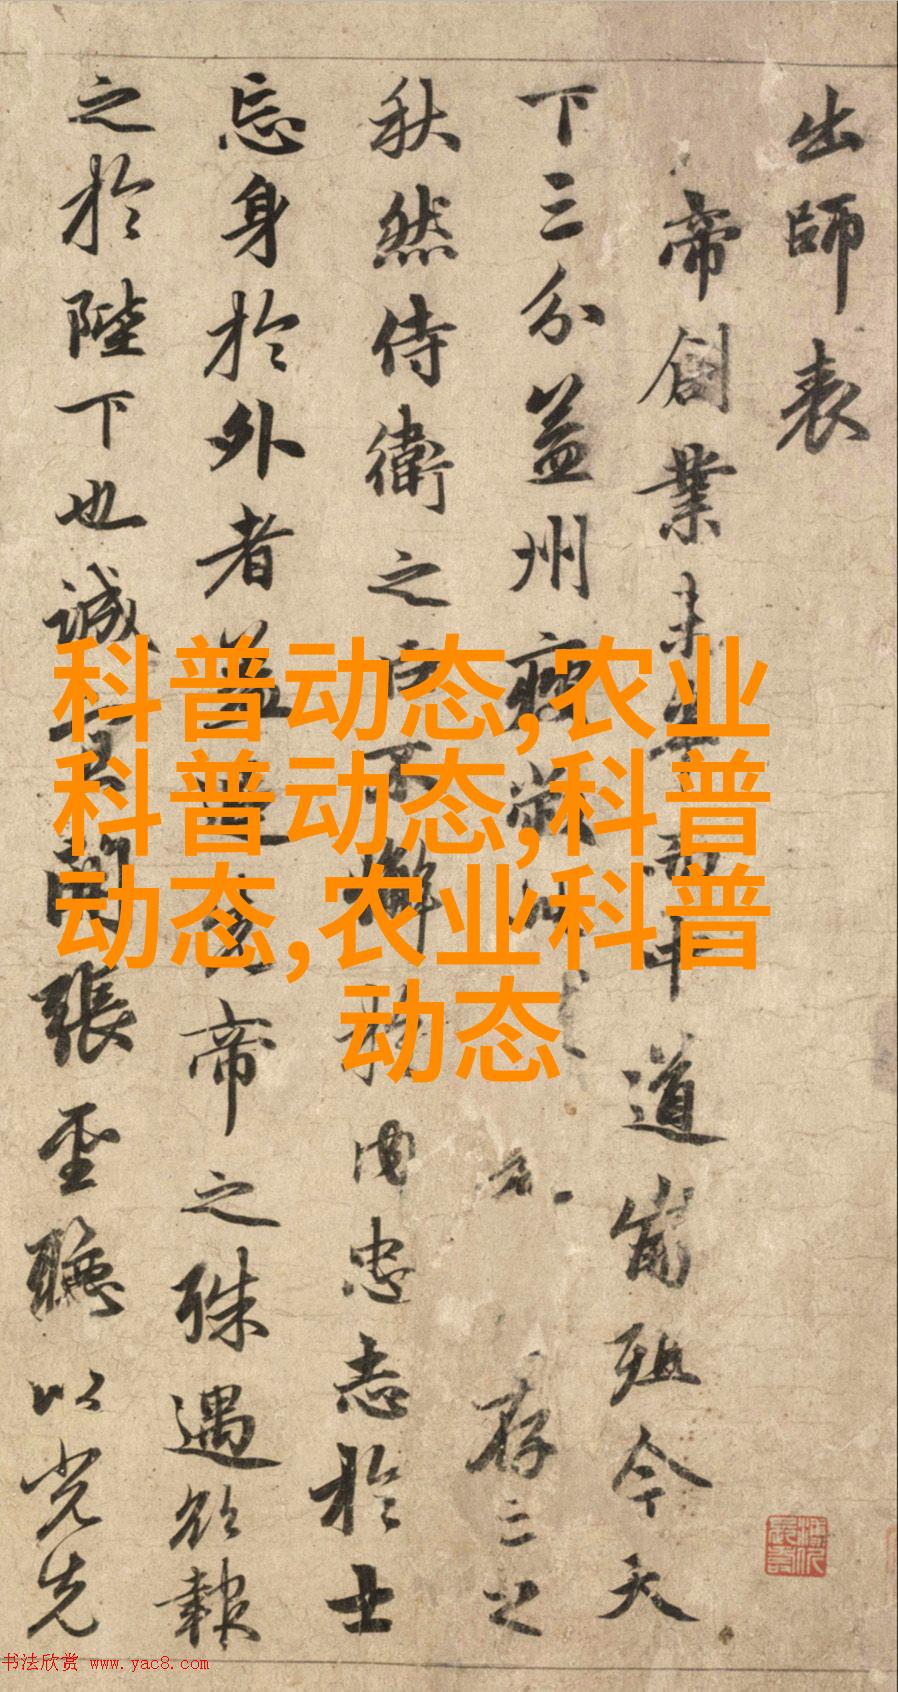 出師表
帝創業未半而中道崩殂今天
下三分益州疲弊此存亡之
秋然侍衛之臣不懈於内忠志於士
忘身於外者蓋追先帝之殊遇欲報
之於陛下也誠宜開張聖聽以光先
科普动态,农业
科普动态,科普
动态,农业科普
动态
书法欣赏 www.yac8.com